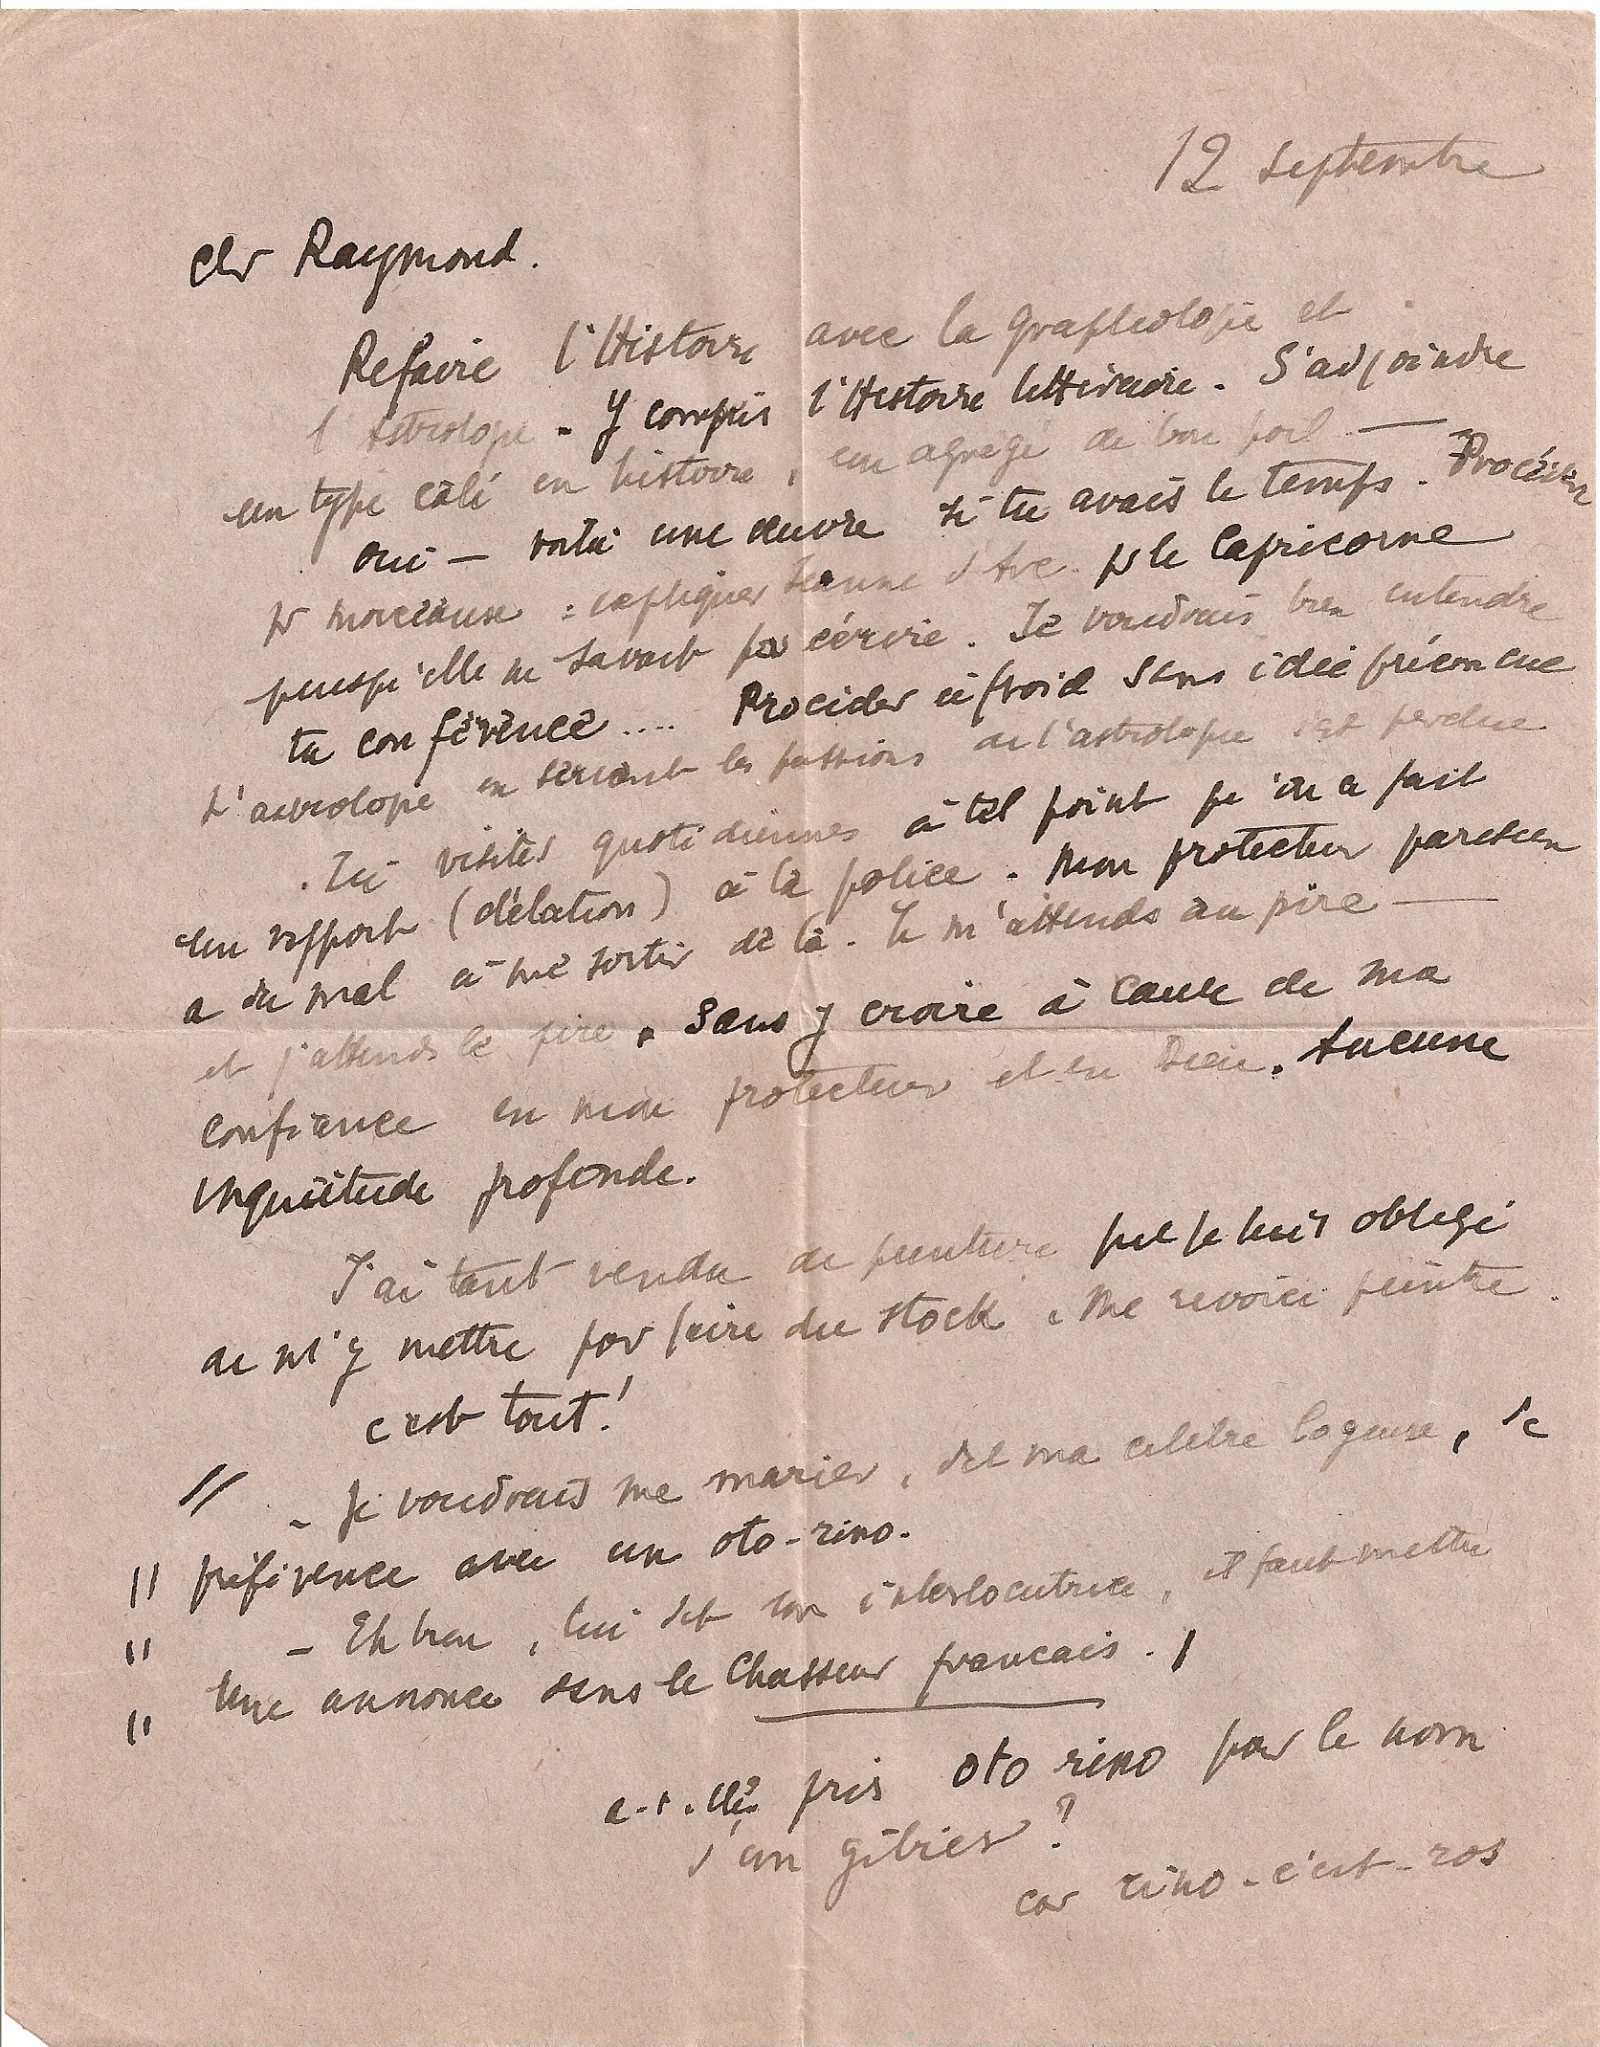 12 septembre
cher Raymond.
Refaire l'Histoire avec la graphologie et
l'Astrologie - Y compris l'Histoire littéraire. S'adjoindre
un type calé en histoire, un agrégé de bon poil —
oui — voilà une œuvre si tu avais le temps. Procéder
pr morceaux : expliquer Jeanne d'Arc pr le Capricorne
puisqu'elle ne savait pas écrire. Je voudrais bien entendre
ta conférence.... Procéder à froid sans idée préconçue
L'astrologie en servant les passions de l'astrologue s'est perdue
. Ici visites quotidiennes à tel point qu'on a fait
un rapport (délation) à la police. Mon protecteur parisien
a du mal à me sortir de là. Je m'attends au pire —
et j'attends le pire. Sans y croire à cause de ma
confiance en mon protecteur et en Dieu. Aucune
inquiétude profonde.
J'ai tant vendu de peinture que je suis obligé
de m'y mettre par faire du stock. Me revoici peintre.
c'est tout!
// - Je voudrais me marier, dit ma célèbre logeuse, de
" préférence avec un oto-rino.
" - Eh bien, lui dit son interlocutrice, il faut mettre
" une annonce dans le Chasseur français.
a-t-elle pris oto rino pour le nom
d'un gibier ?
car rino-c'est-ros